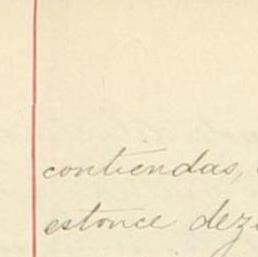 contiendas,
estonce dez